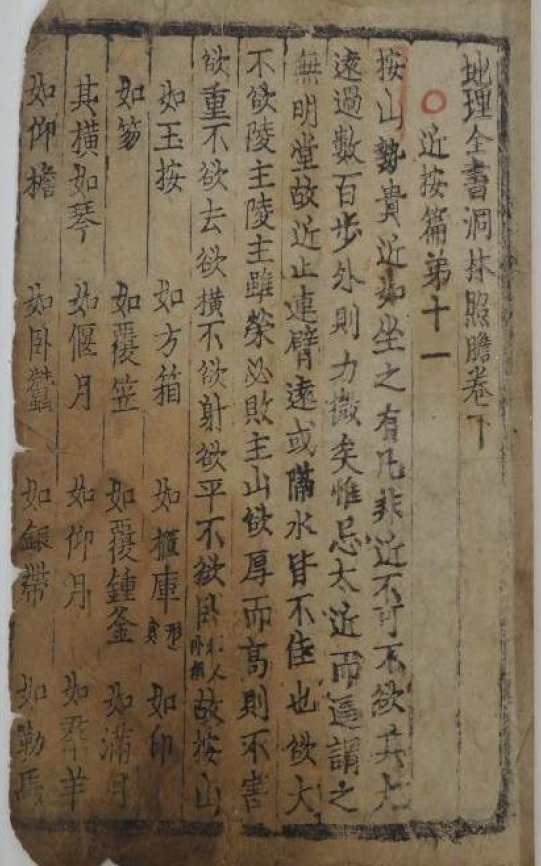 地理全書洞林照膽卷下
○近按篇第十一
按山勢貴近如坐之有几非近不可不欲其大
遠過數百步外則力微矣惟忌太近而逼謂之
無明堂故近止連臂遠或隔水皆不佳也欲大
不欲陵主陵主雖榮必敗主山欲厚而高則不害
欲重不欲去欲橫不欲射欲平不欲臥故按山
如玉按 如方箱 如櫃庫 如印
如笏 如覆笠 如覆鍾釜 如滿月
其橫如琴 如偃月 如仰月 如羣羊
如仰檐 如臥蠶 如銀帶 如勒馬